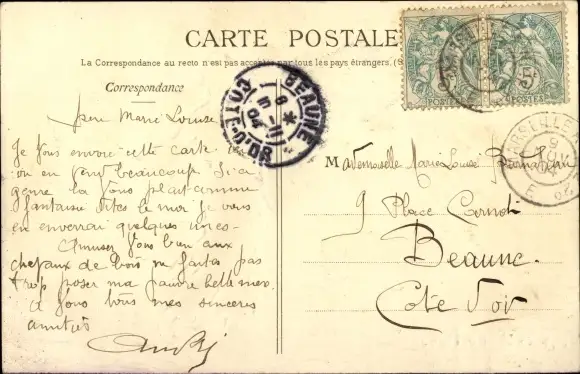 CARTE POSTALE
La Correspondance au recto n'est pas acceptée par tous les pays étrangers. (S
Correspondance
BEAUNE
CÔTE-D'OR
POSTES
POSTES
5
Marie Louise
Je vous envoie cette carte
on en vend beaucoup. Si ce
genre là vous plait comme
fantaisie dites le moi je vous
en enverrai quelques unes.
Amusez vous bien aux
chevaux de bois ne faites pas
trop poser ma pauvre belle mer.
à vous tous mes sinceres
amitiés
André
Mademoiselle Marie Louise
9 Place Carnot
Beaune
Cote d'or
MARSEILLE